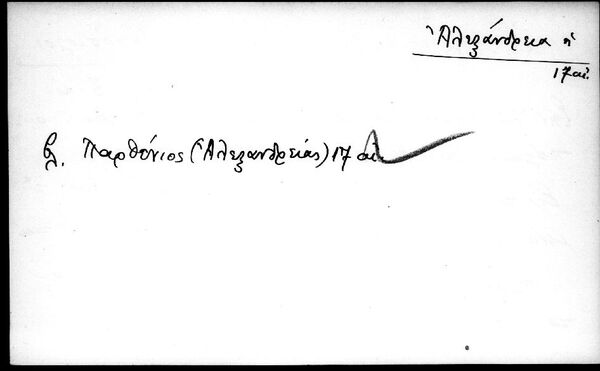 Ἀλεξάνδρεια ἡ
17 αἰ.
βλ. Παρθένιος (Ἀλεξανδρείας) 17 αἰ.